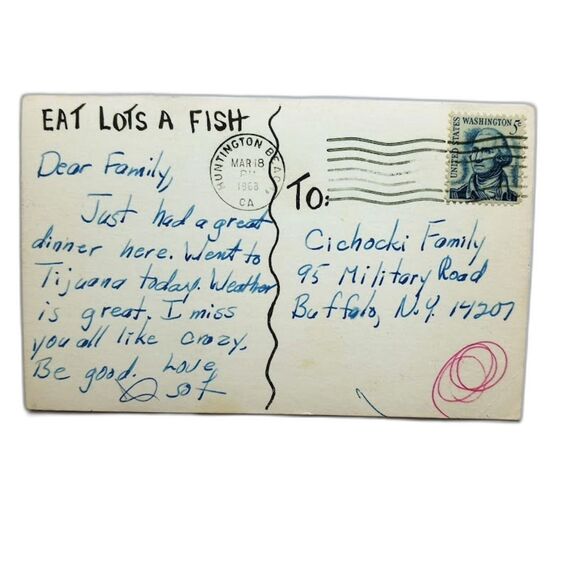 EAT LOTS A FISH
Dear Family,
Just had a great
dinner here. Went to
Tijuana today. Weather
is great. I miss
you all like crazy.
Be good. Love,
HUNTINGTON BEACH
MAR 18
PM
1968
CA
To:
Cichocki Family
95 Military Road
Buffalo, N.Y. 14207
UNITED STATES
WASHINGTON 5¢